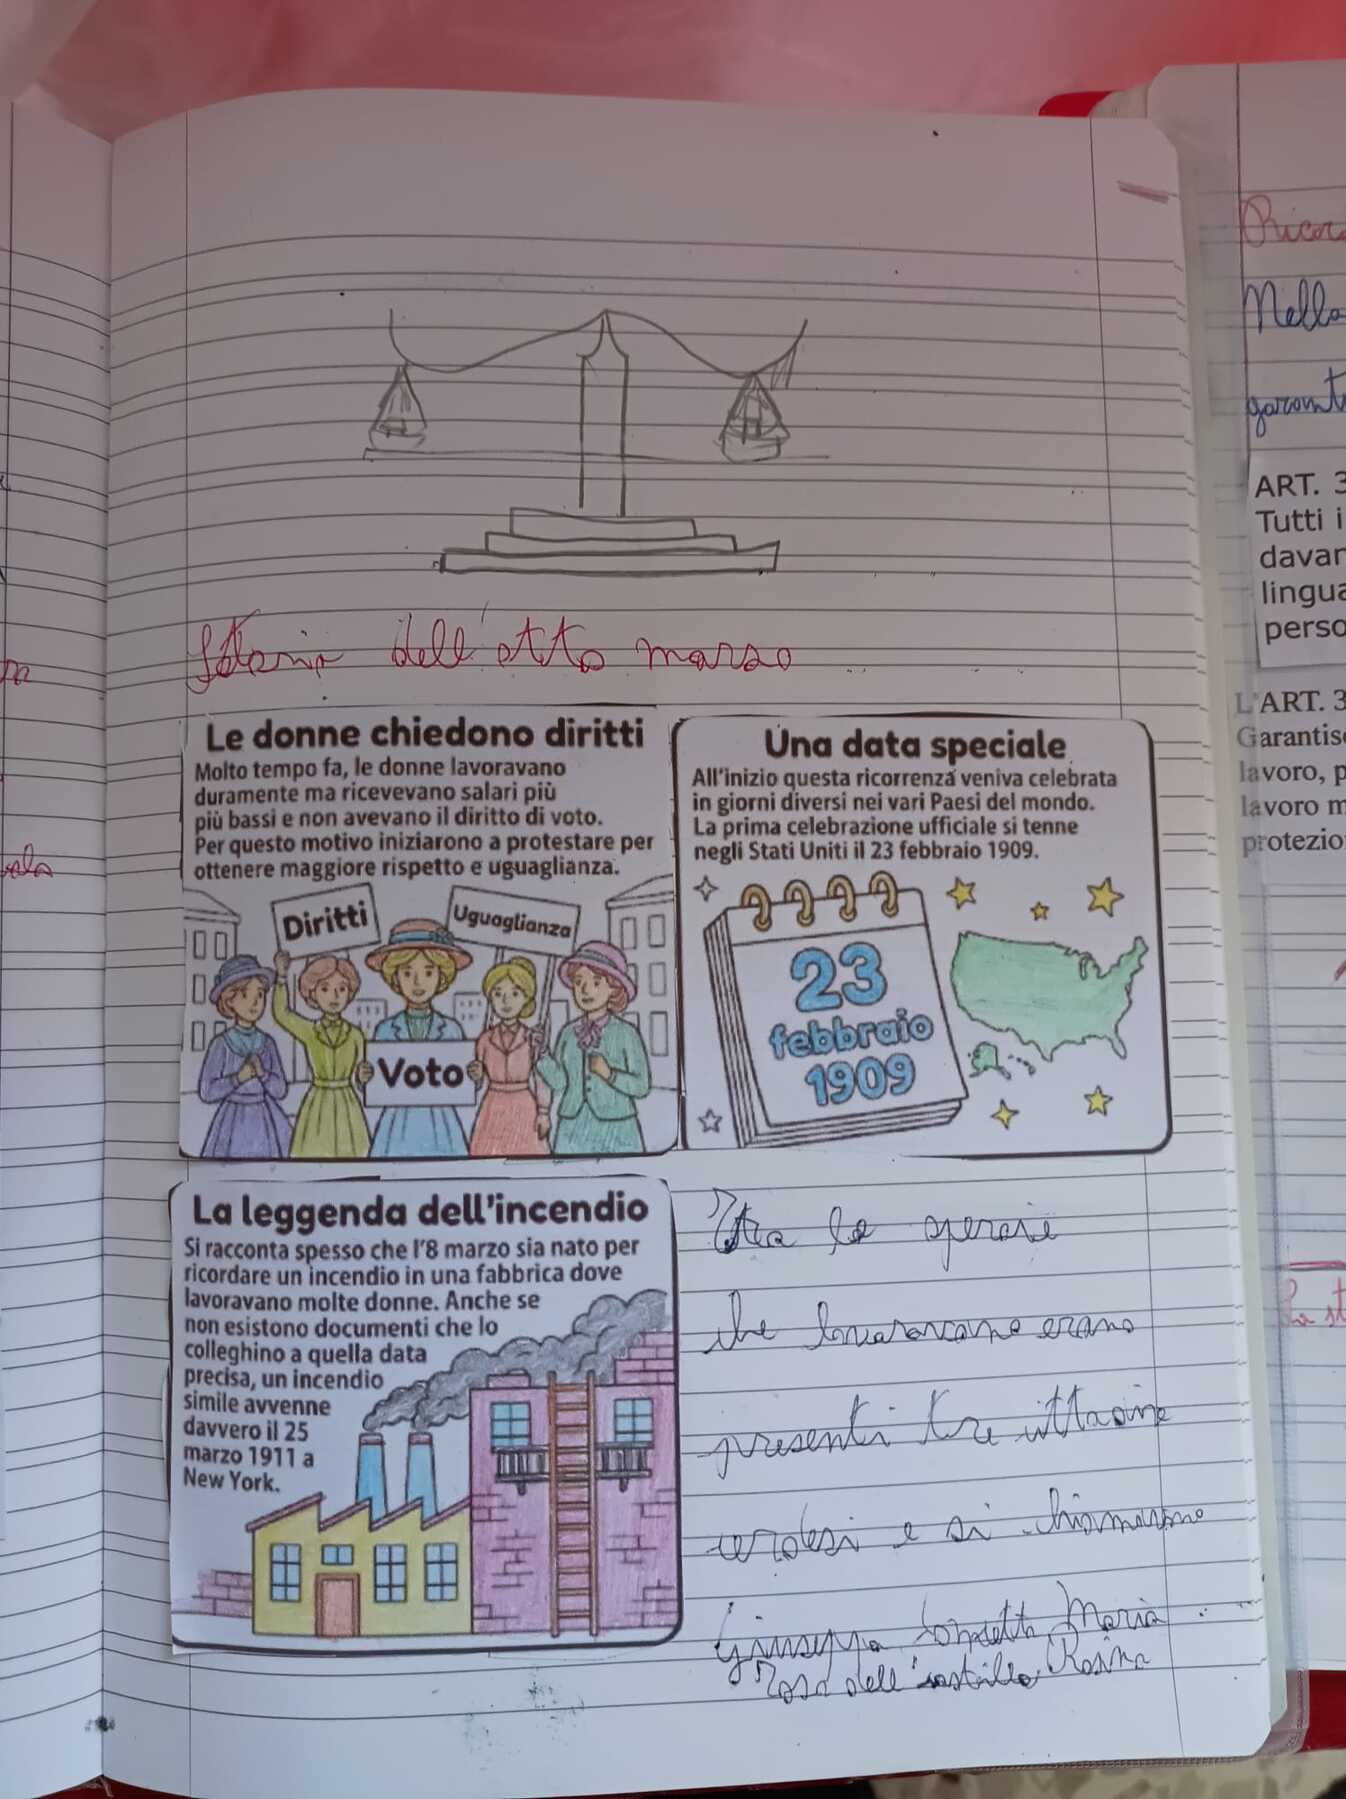 Storia dell'otto marzo
Le donne chiedono diritti
Molto tempo fa, le donne lavoravano
duramente ma ricevevano salari più
più bassi e non avevano il diritto di voto.
Per questo motivo iniziarono a protestare per
ottenere maggiore rispetto e uguaglianza.
Diritti
Uguaglianza
Voto
Una data speciale
All'inizio questa ricorrenza veniva celebrata
in giorni diversi nei vari Paesi del mondo.
La prima celebrazione ufficiale si tenne
negli Stati Uniti il 23 febbraio 1909.
23
febbraio
1909
La leggenda dell'incendio
Si racconta spesso che l'8 marzo sia nato per
ricordare un incendio in una fabbrica dove
lavoravano molte donne. Anche se
non esistono documenti che lo
colleghino a quella data
precisa, un incendio
simile avvenne
davvero il 25
marzo 1911 a
New York.
Tra le operaie
che lavoravano erano
presenti tre
e si chiamavano
Giuseppa Maria
Rosa Rosina
Nella
ART. 3
Tutti i
L'ART. 3
lavoro, p
lavoro m